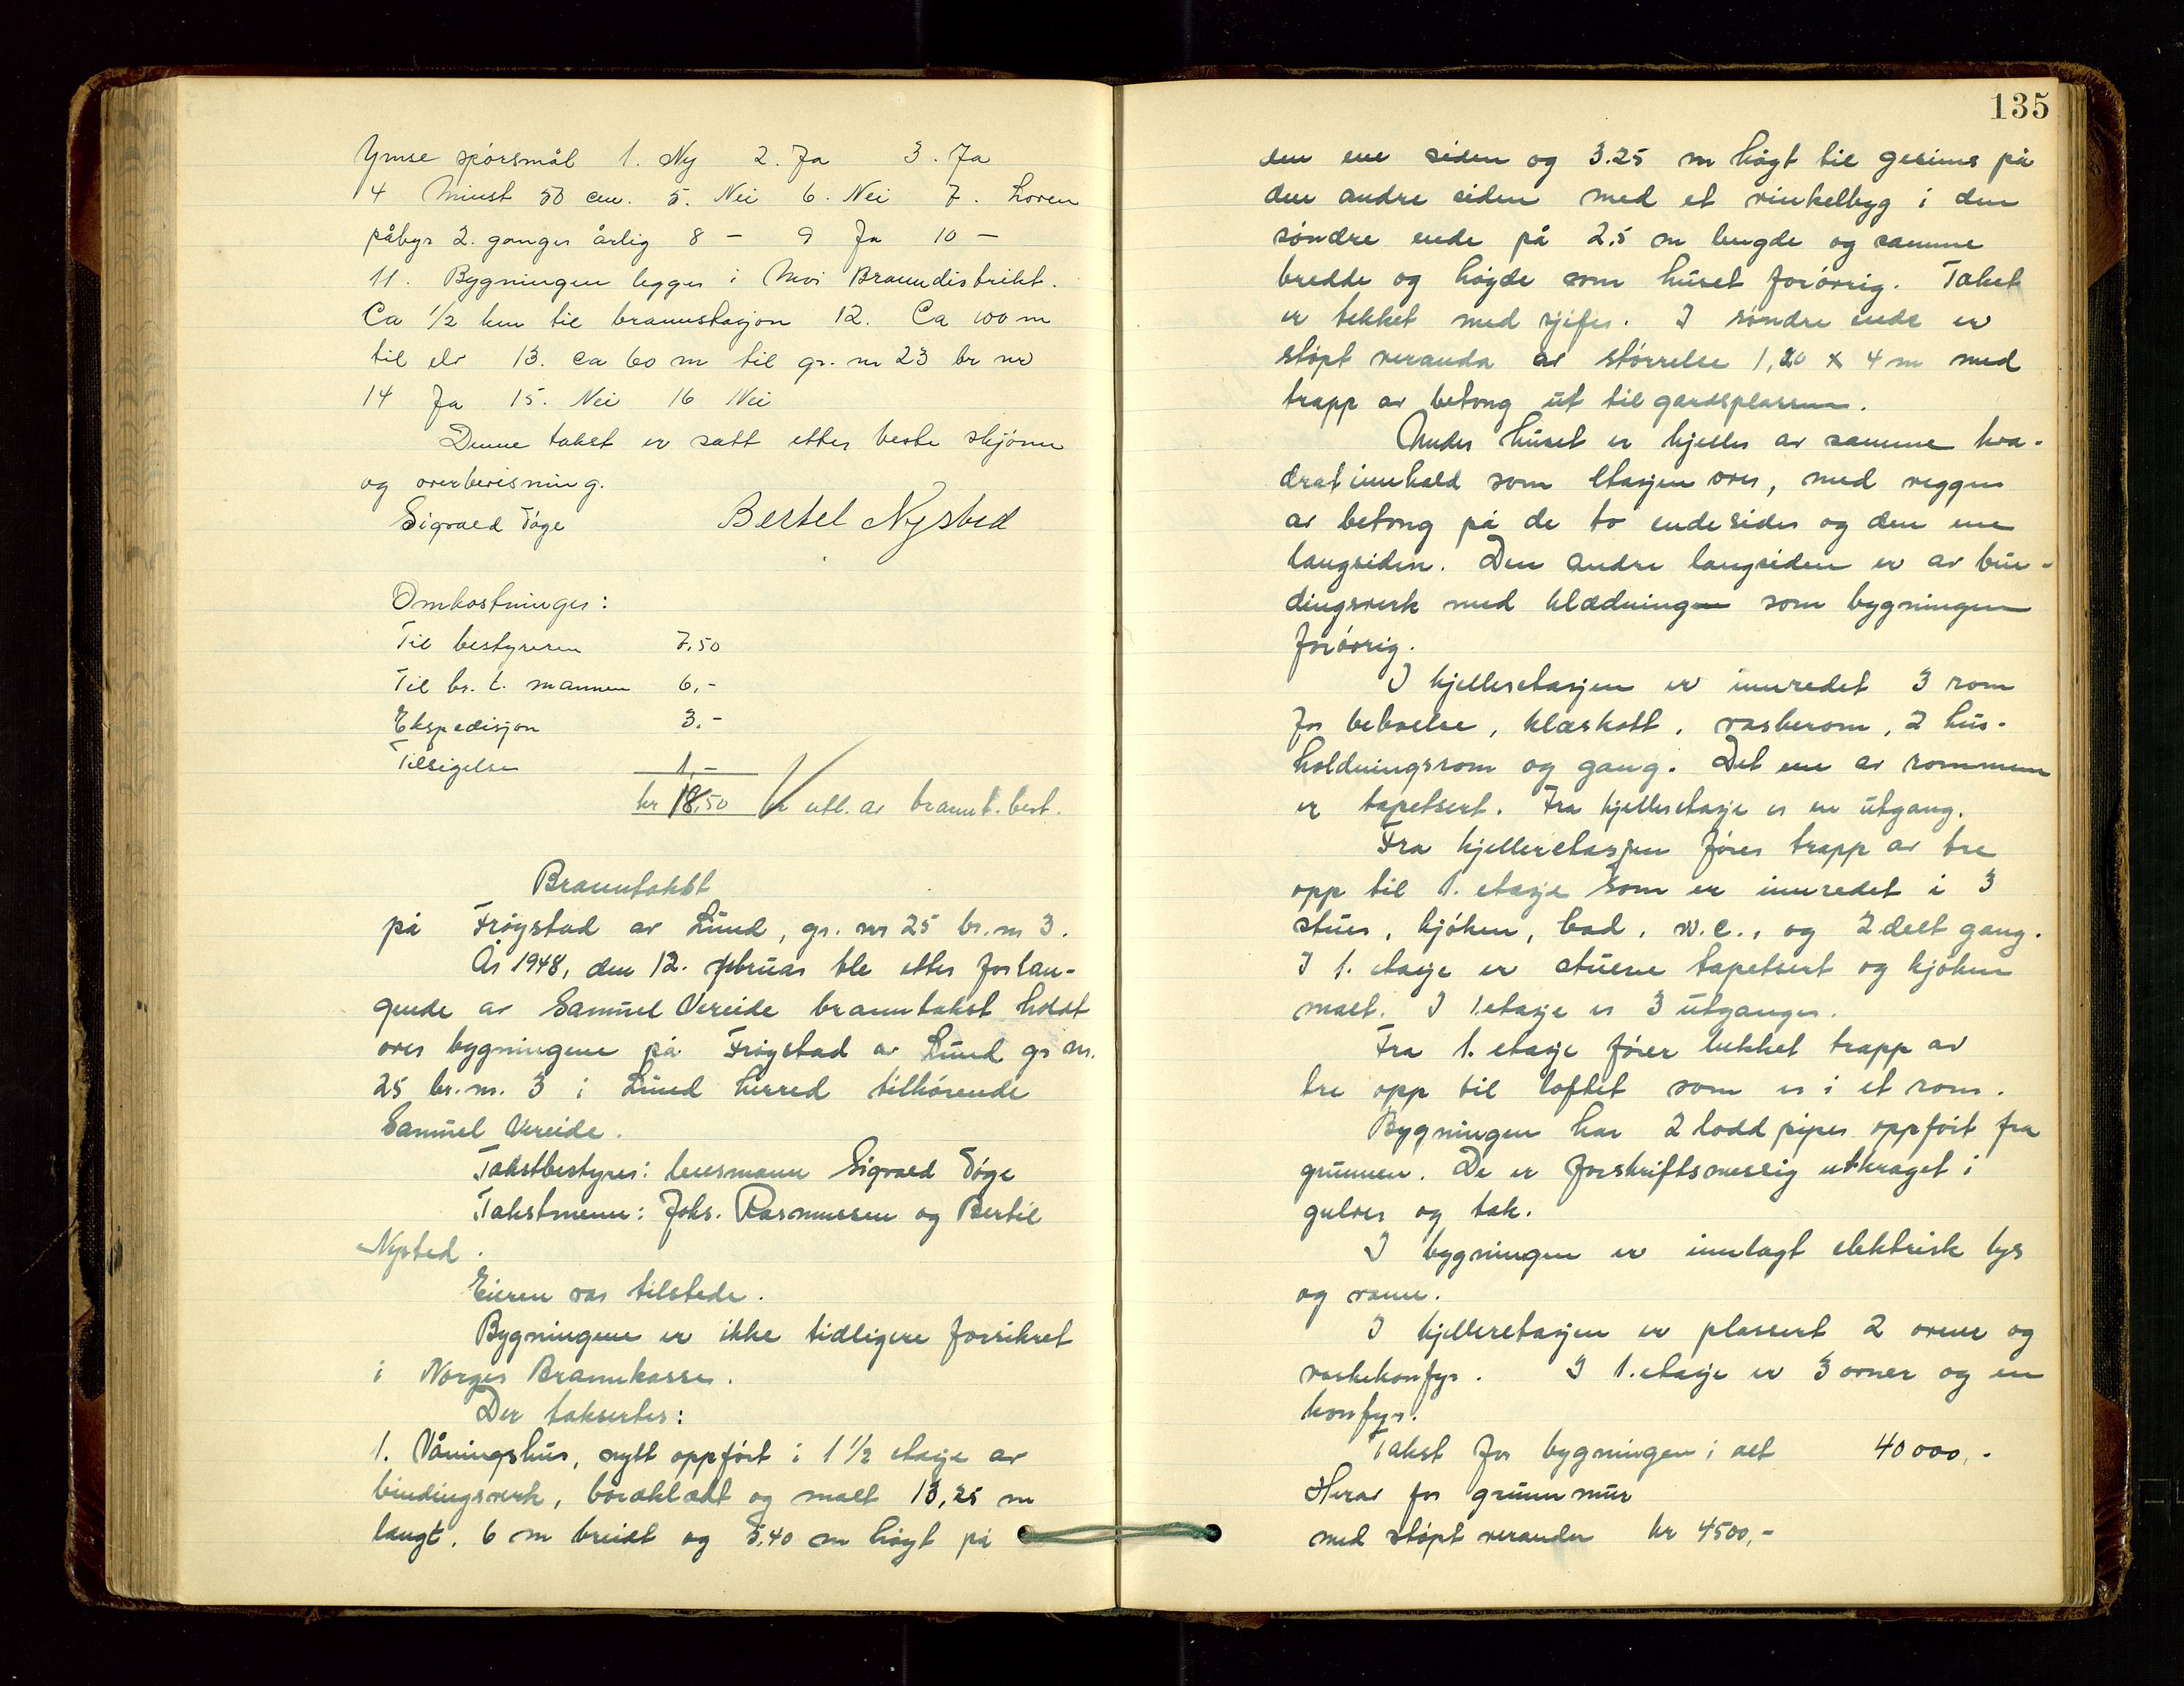 Ymse spørsmål 1. Ny 2. Ja 3. Ja
4 Minst 50 cm. 5. Nei 6. Nei 7. Loven
påbyr 2. ganger årlig 8 – 9 Ja 10 –
11. Bygningen legges i Moi Branndistrikt.
Ca 1/2 km til brannstasjon 12. Ca 100 m
til elv 13. ca 60 m til gr. nr 23 br nr
14 Ja 15. Nei 16 Nei
Denne takst er satt etter beste skjønn
og overbevisning.
Sigvald Tøge Bertel Nysted
Omkostninger:
Til bestyreren 7,50
Til br. t. mannen 6,-
Ekspedisjon 3.-
Tilsigelse 1,-
kr 18,50 er utl. av brannt. best.
Branntakst
på Frøystad av Lund, gr. nr 25 br. nr 3.
År 1948, den 12. februar ble etter forlan-
gende av Samuel Vereide branntakst holdt
over bygningene på Frøystad av Lund gr nr.
25 br. nr. 3 i Lund herred tilhørende
Samuel Vereide.
Takstbestyrer: lensmann Sigvald Tøge
Takstmenn: Johs. Rasmussen og Bertil
Nysted.
Eieren var tilstede.
Bygningene er ikke tidligere forsikret
i Norges Brannkasse.
Der takseres:
1. Våningshus, nytt oppført i 1 1/2 etasje av
bindingsverk, bordklædt og malt 13,25 m
langt, 6 m breidt og 5,40 m høgt på
135
den ene siden og 3.25 m høgt til gesims på
den andre siden med et vinkelbyg i den
søndre ende på 2,5 m lengde og samme
bredde og høgde som huset forøvrig. Taket
er tekket med sjifer. I søndre ende er
støpt veranda av størrelse 1,20 x 4 m med
trapp av betong ut til gardsplassen.
Under huset er kjeller av samme kva-
dratinnhold som etasjen over, med vegger
av betong på de to endesider og den ene
langsiden. Den andre langsiden er av bin-
dingsverk med klædning som bygningen
forøvrig.
I kjelleretasjen er innredet 3 rom
for beboelse, klæskott, vaskerom, 2 hus-
holdningsrom og gang. Det ene av rommene
er tapetsert. Fra kjelleretasje er en utgang.
Fra kjelleretasjen fører trapp av tre
opp til 1. etasje som er innredet i 3
stuer, kjøken, bad, w.c., og 2 delt gang.
I 1. etasje er stuene tapetsert og kjøken
malt. I 1 etasje er 3 utganger.
Fra 1. etasje fører lukket trapp av
tre opp til loftet som er i et rom.
Bygningen har 2 lodd piper oppført fra
grunnen. De er forskriftsmessig utkraget i
gulver og tak.
I bygningen er innlagt elektrisk lys
og vann.
I kjelleretasjen er plassert 2 ovner og
vaskekomfyr. I 1. etasje er 3 ovner og en
komfyr.
Takst for bygningen i alt 40 000,-
Herav for grunnmur
med støpt veranda kr 4500,-